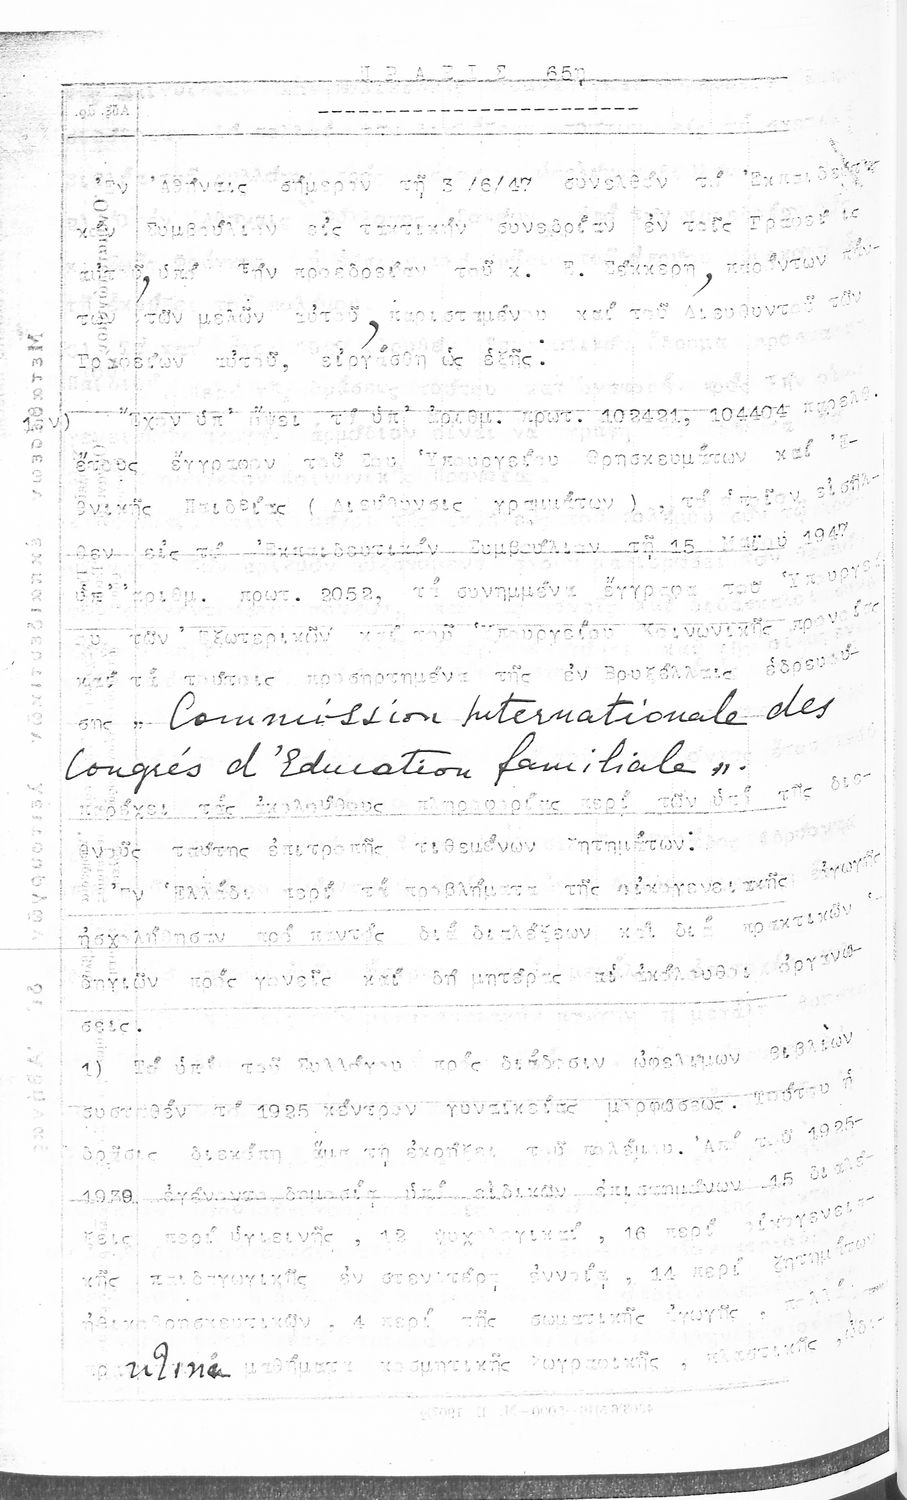 Π Ρ Α Ξ Ι Σ 65η
Ἐν Ἀθήναις σήμερον τῇ 3/6/47 συνελθόν τό Ἐκπαιδευτι-
κόν Συμβούλιον εἰς τακτικήν συνεδρίαν ἐν τοῖς Γραφείοις
αὐτοῦ, ὑπό τήν προεδρείαν τοῦ κ. Σακκερη, παρόντων πάν-
των τῶν μελῶν αὐτοῦ, παρισταμένου καί τοῦ Διευθυντοῦ τῶν
Γραφείων αὐτοῦ, εἰργάσθη ὡς ἐξῆς:
1ον) Ἔχον ὑπ' ὄψει τό ὑπ' ἀριθμ. πρωτ. 102421, 104404 παρελθ.
ἔτους ἔγγραφον τοῦ Σου Ὑπουργείου Θρησκευμάτων καί Ἐ-
θνικῆς Παιδείας (Διεύθυνσις γραμμάτων), τό ὁποῖον εἰσῆλ-
θεν εἰς τό Ἐκπαιδευτικόν Συμβούλιον τῇ 15 Μαΐου 1947
ὑπ' ἀριθμ. πρωτ. 2052, τά συνημμένα ἔγγραφα τοῦ Ὑπουργεί-
ου τῶν Ἐξωτερικῶν καί τοῦ Ὑπουργείου Κοινωνικῆς προνοίας
καί τά τούτοις προσηρτημένα τῆς ἐν Βρυξέλλαις ἑδρευού-
σης „ Commission Internationale des
Congrés d'Education familiale „.
παρέχει τάς ἀκολούθους πληροφορίας περί τῶν ὑπό τῆς διε-
θνοῦς ταύτης ἐπιτροπῆς τιθεμένων ζητημάτων:
Ἐν Ἑλλάδι περί τά προβλήματα τῆς οἰκογενειακῆς ἀγωγῆς
ἠσχολήθησαν πρό παντός διά διαλέξεων καί διά πρακτικῶν ὁ-
δηγιῶν πρός γονεῖς καί δή μητέρας αἱ ἀκόλουθοι ὀργανώ-
σεις.
1) Τό ὑπό τοῦ Συλλόγου πρός διάδοσιν ὠφελίμων βιβλίων
συσταθέν τό 1925 κέντρον γυναικείας μορφώσεως. Τούτου ἡ
δρᾶσις διεκόπη ἅμα τῇ ἐκρήξει τοῦ πολέμου. Ἀπό τοῦ 1925-
1939 ἐγένοντο δημοσίᾳ ὑπό εἰδικῶν ἐπιστημόνων 15 διαλέ-
ξεις περί ὑγιεινῆς, 12 ψυχολογικαί, 16 περί οἰκογενεια-
κῆς παιδαγωγικῆς ἐν στενωτέρᾳ ἐννοίᾳ, 14 περί ζητημάτων
ἠθικοθρησκευτικῶν, 4 περί τῆς σωματικῆς ἀγωγῆς, πολλά
μαθήματα κοσμητικῆς ζωγραφικῆς, πλαστικῆς, ᾠδι-